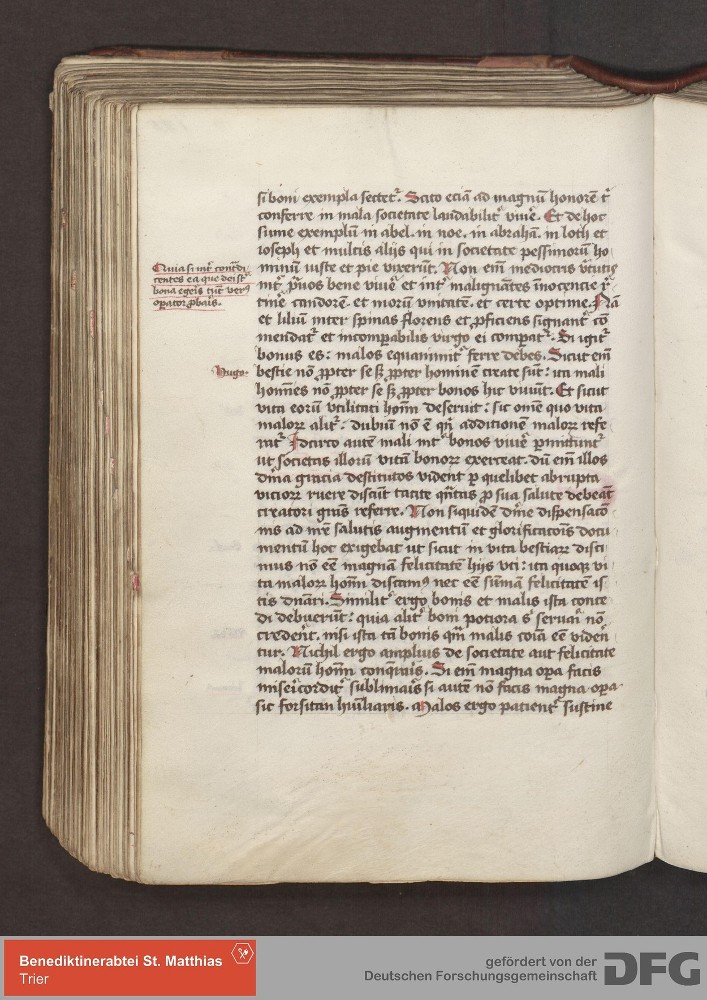 si boni exempla sectet᷑. Scito eciā ad magnū honorē t᷑
conferre in mala societate laudabilit᷑ viuē. Et de hoc
sume exemplū in abel. in noe. in abrahā. in loth et
ioseph et multis alijs qui in societate pessimorū ho
minū iuste et pie vixerūt. Non em̄ mediocris v̓tutis
int᷑ p̓uos bene viuē et int᷑ malignātes īnocencie r̓
tinē candorē et morū vnitatē. et certe optime. Nā
et liliū inter spinas florens et ꝓficiens signant᷑ cō
mendat᷑ et incomꝑabilis virgo ei compat᷑. Si igit᷑
bonus es: malos equanimit᷑ ferre debes. Sicut em̄
bestie nō ꝓpter se sꝫ ꝓpter hominē create sūt: ita mali
homīes nō ꝓpter se sꝫ ꝓpter bonos hic viuūt. Et sicut
vita eorū vtilitati homī deseruit: sic omē quo vita
maloꝝ alit᷑: dubiū nō ē qn̄ ad ditionē maloꝝ refe
rat᷑ Idcirco autē mali int᷑ bonos viuē p̱mittunt᷑
ut societas illorū vitā bonoꝝ exerceat. dū em̄ illos
diīna gracia destitutos vident ꝑ quelibet abrupta
vicioꝝ ruere discūt tacite qn̄tas ꝓ sua salute debeāt
creatori grās referre. Non siquidē diīne dispensacō
nis ad nr̄e salutis augmentū et glorificacōis docu
mentū hoc exigebat ut sicut in vita bestiaꝝ disci
mus nō eē magnā felicitatē hijs vti: ita quoqꝫ vi
ta maloꝝ homī discamꝰ nec eē sūmā felicitatē is
tis dn̄ari. Similit᷑ ergo bonis et malis ista conce
di debuerūt: quia alit᷑ boni potiora s̓ seruari nō
crederēt. nisi ista tā bonis qm̄ malis cōia eē viderē
tur. Nichil ergo amplius de societate aut felicitate
malorū homī conq̄raīs. Si em̄ magna opa facis
miseri corditer sublimaīs si autē nō facis magna opa
sic forsitan hūiliaris. Malos ergo patient᷑ sustine
Quia si int᷑ contdi
centes ea que dei st̄
bona egeīs tūc verꝰ
operator ꝓbaīs.
Hugo.
Benediktinerabtei St. Matthias
Trier
gefördert von der
Deutschen Forschungsgemeinschaft
DFG